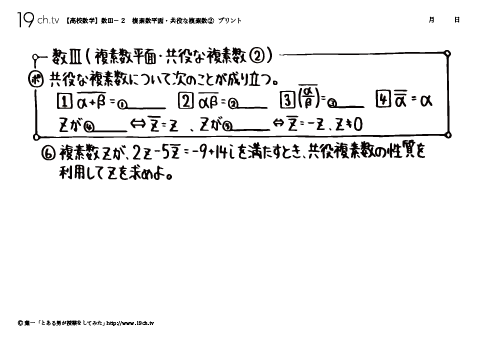 19ch.tv 【高校数学】 数Ⅲ-2 複素数平面・共役な複素数② プリント 月 日
数Ⅲ(複素数平面・共役な複素数②)
ポ 共役な複素数について次のことが成り立つ。
1 \overline{α+β}=①____ 2 \overline{αβ}=②____ 3 \overline{(α/β)}=③____ 4 \overline{\overline{α}}=α
zが④____⇔\overline{z}=z、zが⑤____⇔\overline{z}=-z、z≠0
⑥ 複素数zが、2z-5\overline{z}=-9+14iを満たすとき、共役複素数の性質を
利用してzを求めよ。
©葉一「とある男が授業をしてみた」http://www.19ch.tv